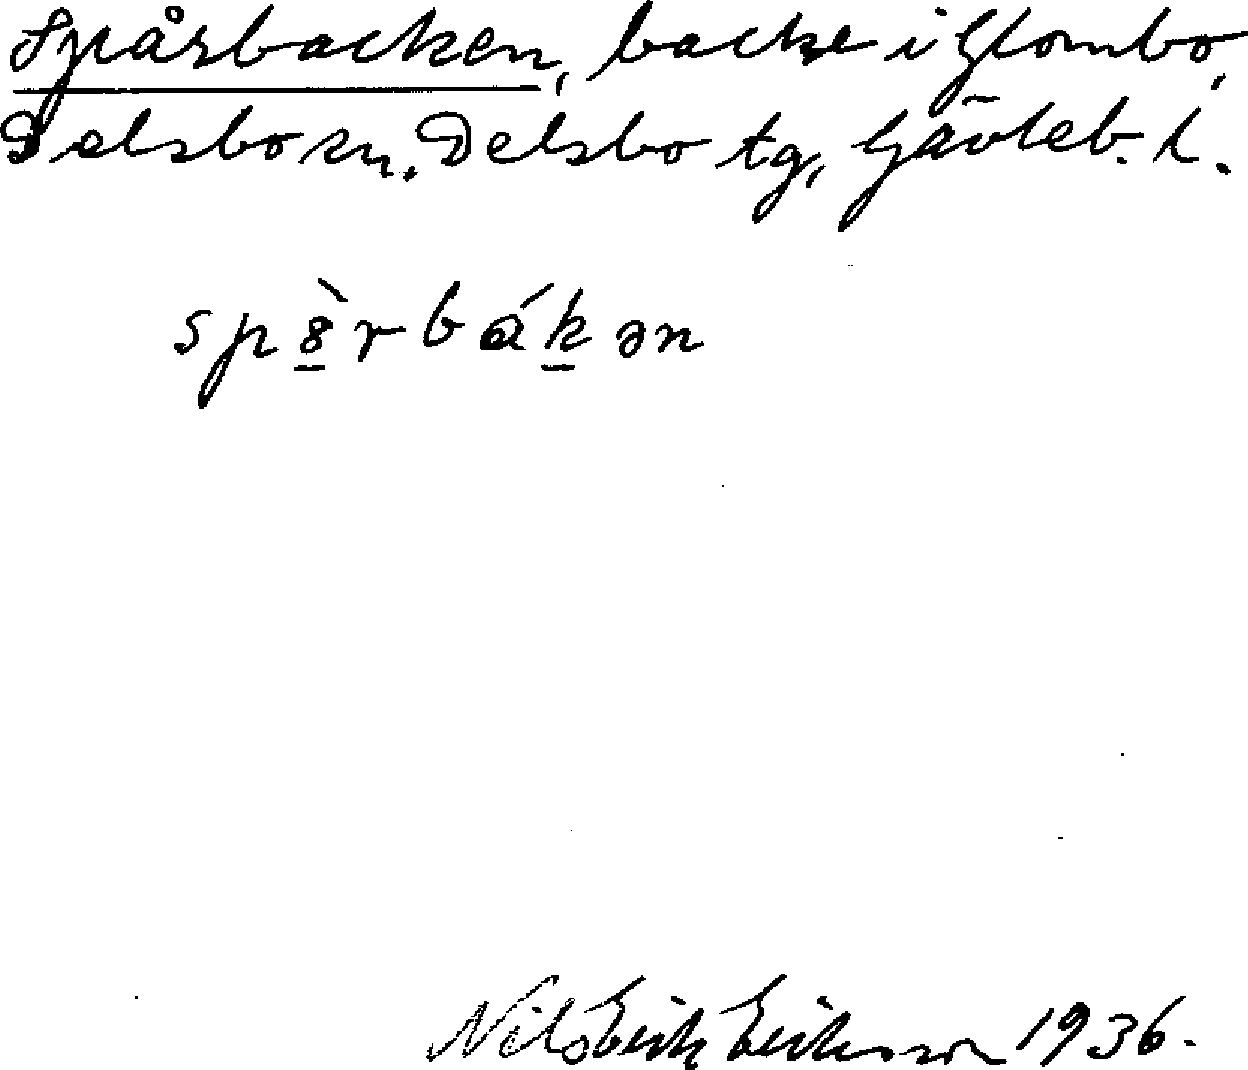 Spårbacken, backe i Glombo,
Delsbo sn, Delsbo tg, Gävleb. l.
sp8̱̀rbáḵən
Nils Erik Eriksson 1936.